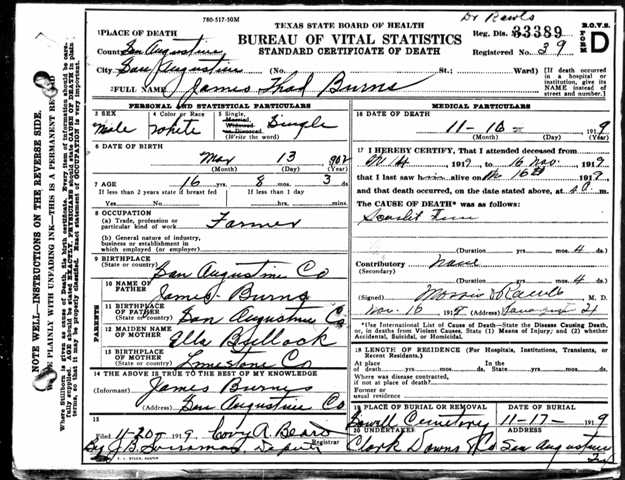 780-517-50M
TEXAS STATE BOARD OF HEALTH
BUREAU OF VITAL STATISTICS
STANDARD CERTIFICATE OF DEATH
Dr Rawls
Reg. Dis. 33389
Registered No. 39
B.O.V.S.
FORM
D
1 PLACE OF DEATH
County San Augustine
City San Augustine (No. St.; Ward)
[If death occurred in a hospital or institution, give its NAME instead of street and number.]
2 FULL NAME James Thad Burns
PERSONAL AND STATISTICAL PARTICULARS
3 SEX
Male
4 Color or Race
White
5 Single,
Married,
Widowed,
or Divorced
(Write the word)
Single
6 DATE OF BIRTH
Mar 13 902
(Month) (Day) (Year)
7 AGE 16 yrs. 8 mos. 3 ds.
If less than 2 years state if breast fed
If less than 1 day
Yes No hrs. min.
8 OCCUPATION
(a) Trade, profession or
particular kind of work Farmer
(b) General nature of industry,
business or establishment in
which employed (or employer)
9 BIRTHPLACE
(State or country) San Augustine Co
PARENTS
10 NAME OF
FATHER James Burns
11 BIRTHPLACE
OF FATHER
(State or country) San Augustine Co
12 MAIDEN NAME
OF MOTHER Ella Bullock
13 BIRTHPLACE
OF MOTHER
(State or country) Limestone Co
14 THE ABOVE IS TRUE TO THE BEST OF MY KNOWLEDGE
(Informant) James Burns
(Address) San Augustine Co
15
Filed 11-20 1919
Registrar
By Deputy
MEDICAL PARTICULARS
16 DATE OF DEATH
11-16 1919
(Month) (Day) (Year)
17 I HEREBY CERTIFY, That I attended deceased from
191 to 16 Nov. 191
that I last saw him alive on 16th 191
and that death occurred, on the date stated above, at m.
The CAUSE OF DEATH* was as follows:
Scarlet Fever
(Duration yrs. mos. 4 ds.
Contributory None
(Secondary)
(Duration yrs. mos. 4 ds.
(Signed) M. D.
Nov. 16 191 (Address)
*Use International List of Cause of Death—State the Disease Causing Death, or, in deaths from Violent Causes, State (1) Means of Injury; and (2) whether Accidental, Suicidal, or Homicidal.
18 LENGTH OF RESIDENCE (For Hospitals, Institutions, Transients, or Recent Residents.)
At place
of death yrs. mos. ds. State yrs. mos. ds.
Where was disease contracted,
if not at place of death?
Former or
usual residence
19 PLACE OF BURIAL OR REMOVAL DATE OF BURIAL
Cemetery 11-17- 1919
20 UNDERTAKER ADDRESS
Clark Downs & Co San Augustine
NOTE WELL—INSTRUCTIONS ON THE REVERSE SIDE.
PLAINLY WITH UNFADING INK—THIS IS A PERMANENT RECORD